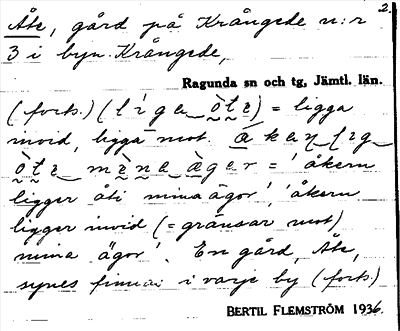 2.
Åte, gård på Krångede n:r
3 i byn Krångede,
Ragunda sn och tg, Jämtl. län.
(forts.) (líga òtɛ) = ligga
invid, ligga mot. åkeṇ líg
òtɛ mèna ægɛr = 'åkern
ligger åti mina ägor', 'åkern
ligger invid (= gränsar mot)
mina ägor'. En gård, Åte,
synes finnas i varje by (forts.)
BERTIL FLEMSTRÖM 1936.